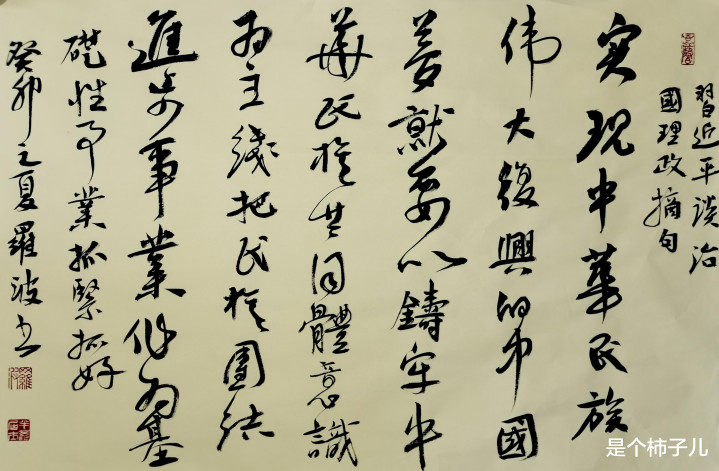 習近平谈治
國理政摘句
实現中華民族
伟大復興的中國
夢就要以鑄牢中
華民族共同體意識
为主线把民族團结
進步事業作为基
礎性事業抓緊抓好
癸卯之夏羅波书
是个柿子儿